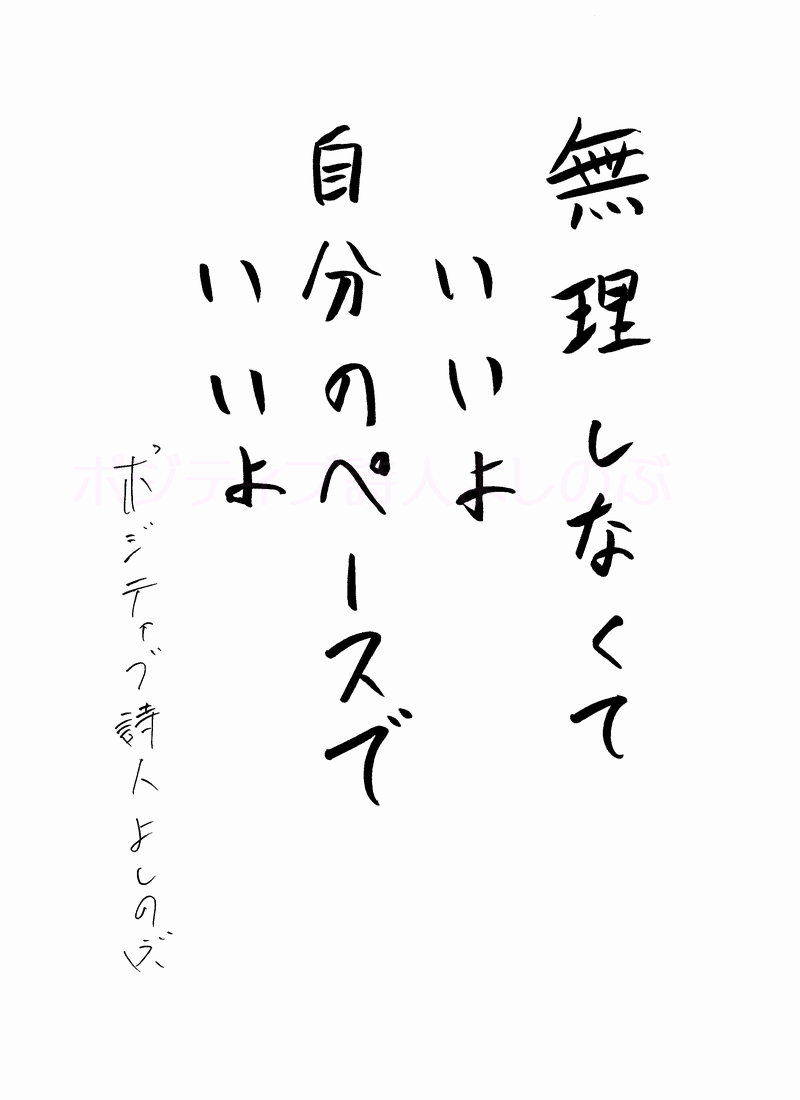 無理しなくて
いいよ
自分のペースで
いいよ
ポジティブ詩人よしのぶ
ポジティブ詩人よしのぶ